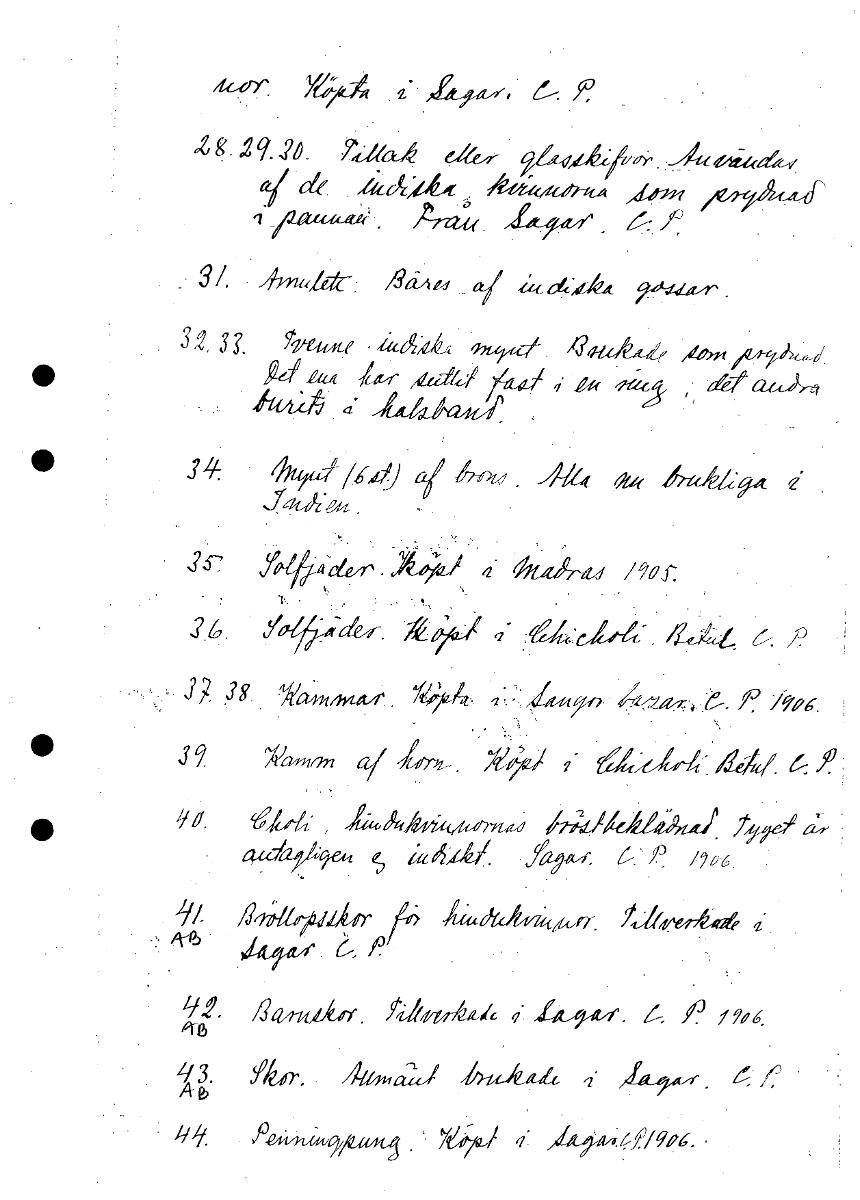 nor. Köpta i Sagar. C. P.
28.29.30. Tillak eller glasskifvor. Användas
af de indiska kvinnorna som prydnad
i pannan. Från Sagar. C. P.
31. Amulett. Bäres af indiska gossar.
32.33. Tvenne indiska mynt. Brukade som prydnad.
Det ena har suttit fast i en ring, det andra
burits i halsband.
34. Mynt (6 st.) af brons. Alla nu brukliga i
Indien.
35. Solfjäder. Köpt i Madras 1905.
36. Solfjäder. Köpt i Chicholi. Betul. C. P.
37.38. Kammar. Köpta i Saugor bazar. C. P. 1906.
39. Kamm af horn. Köpt i Chicholi Betul. C. P.
40. Choli, hindukvinnornas bröstbeklädnad. Tyget är
antagligen ej indiskt. Sagar. C. P. 1906.
41. Bröllopsskor för hindukvinnor. Tillverkade i
AB Sagar. C. P.
42. Barnskor. Tillverkade i Sagar. C. P. 1906.
AB
43. Skor. Allmänt brukade i Sagar. C. P.
AB
44. Penningpung. Köpt i Sagar. C.P. 1906.